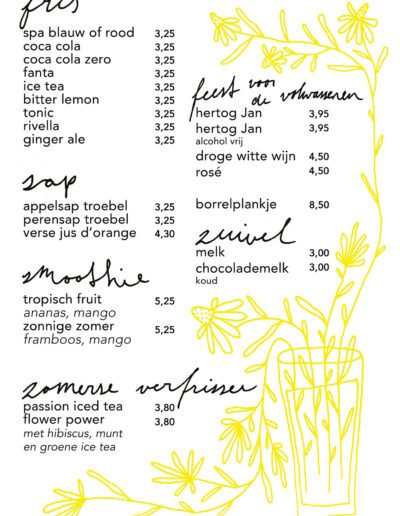 fris
spa blauw of rood 3,25
coca cola 3,25
coca cola zero 3,25
fanta 3,25
ice tea 3,25
bitter lemon 3,25
tonic 3,25
rivella 3,25
ginger ale 3,25
sap
appelsap troebel 3,25
perensap troebel 3,25
verse jus d'orange 4,30
smoothie
tropisch fruit 5,25
ananas, mango
zonnige zomer 5,25
framboos, mango
zomerse verfrisser
passion iced tea 3,80
flower power 3,80
met hibiscus, munt
en groene ice tea
feest voor
de volwassenen
hertog Jan 3,95
hertog Jan 3,95
alcohol vrij
droge witte wijn 4,50
rosé 4,50
borrelplankje 8,50
zuivel
melk 3,00
chocolademelk 3,00
koud